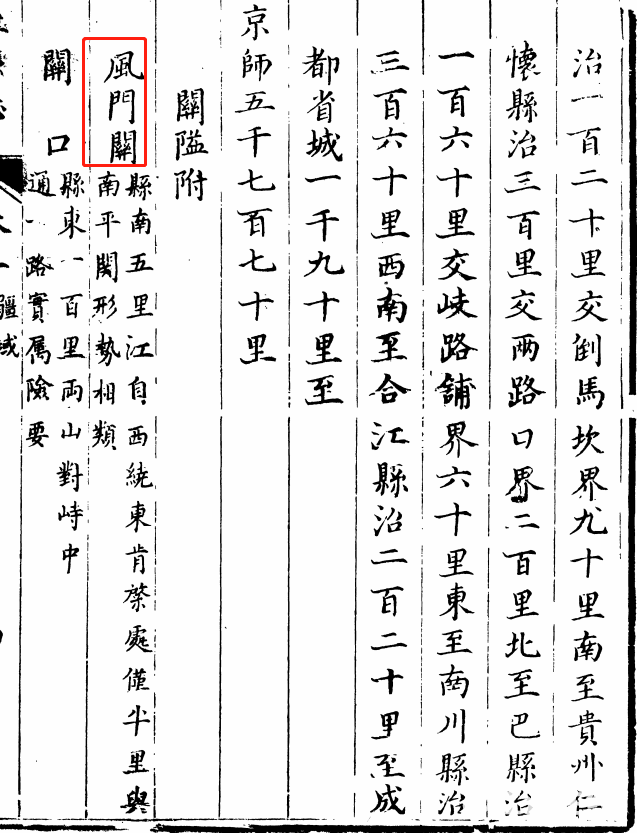 治一百二十里交倒馬坎界九十里南至貴州仁
懷縣治三百里交兩路口界二百里北至巴縣治
一百六十里交岐路舖界六十里東至南川縣治
三百六十里西南至合江縣治二百二十里至成
都省城一千九十里至
京師五千七百七十里
關隘附
風門關
縣南五里江自西繞東肯綮處僅半里與
南平關形勢相類
關口
縣東一百里兩山對峙中
通一路實屬險要
疆域